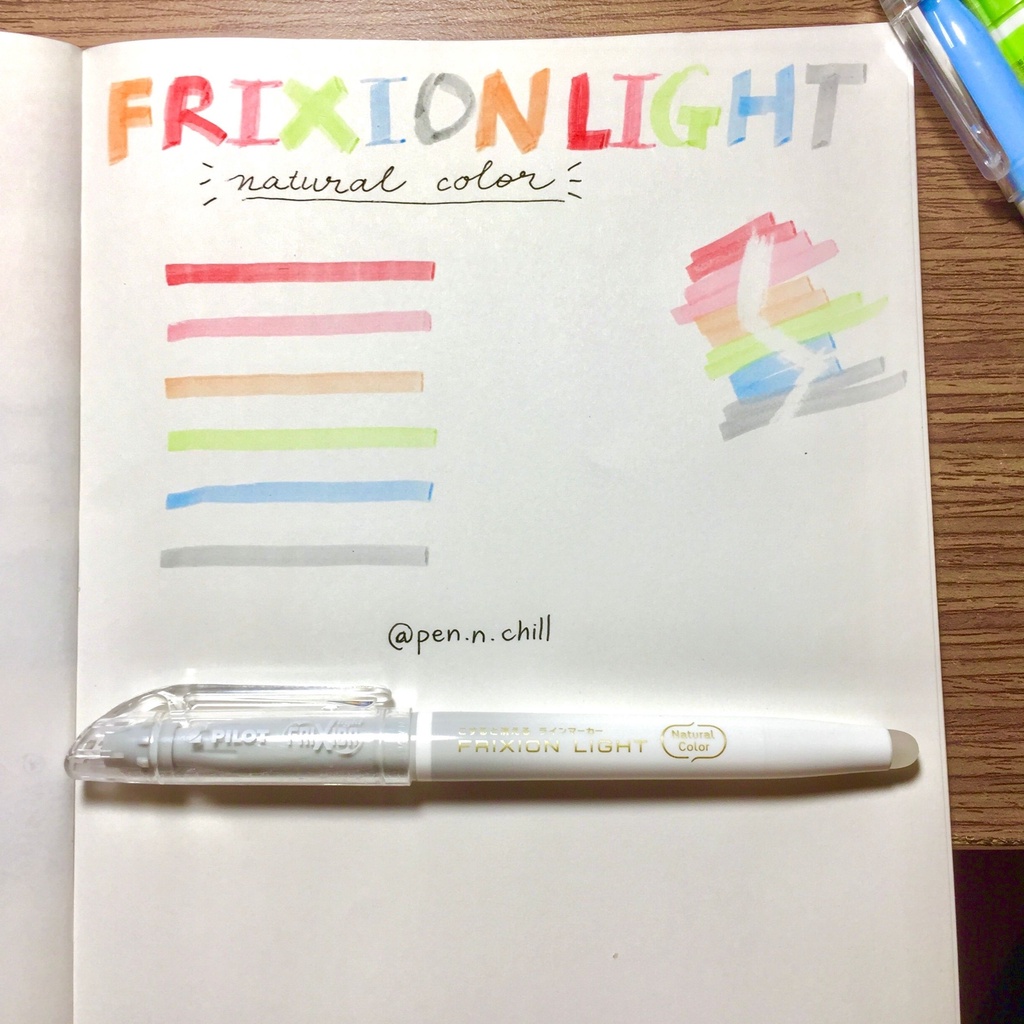 FRIXION LIGHT
natural color
@pen.n.chill
PILOT FRIXION
こすると消える ラインマーカー
FRIXION LIGHT
Natural
Color